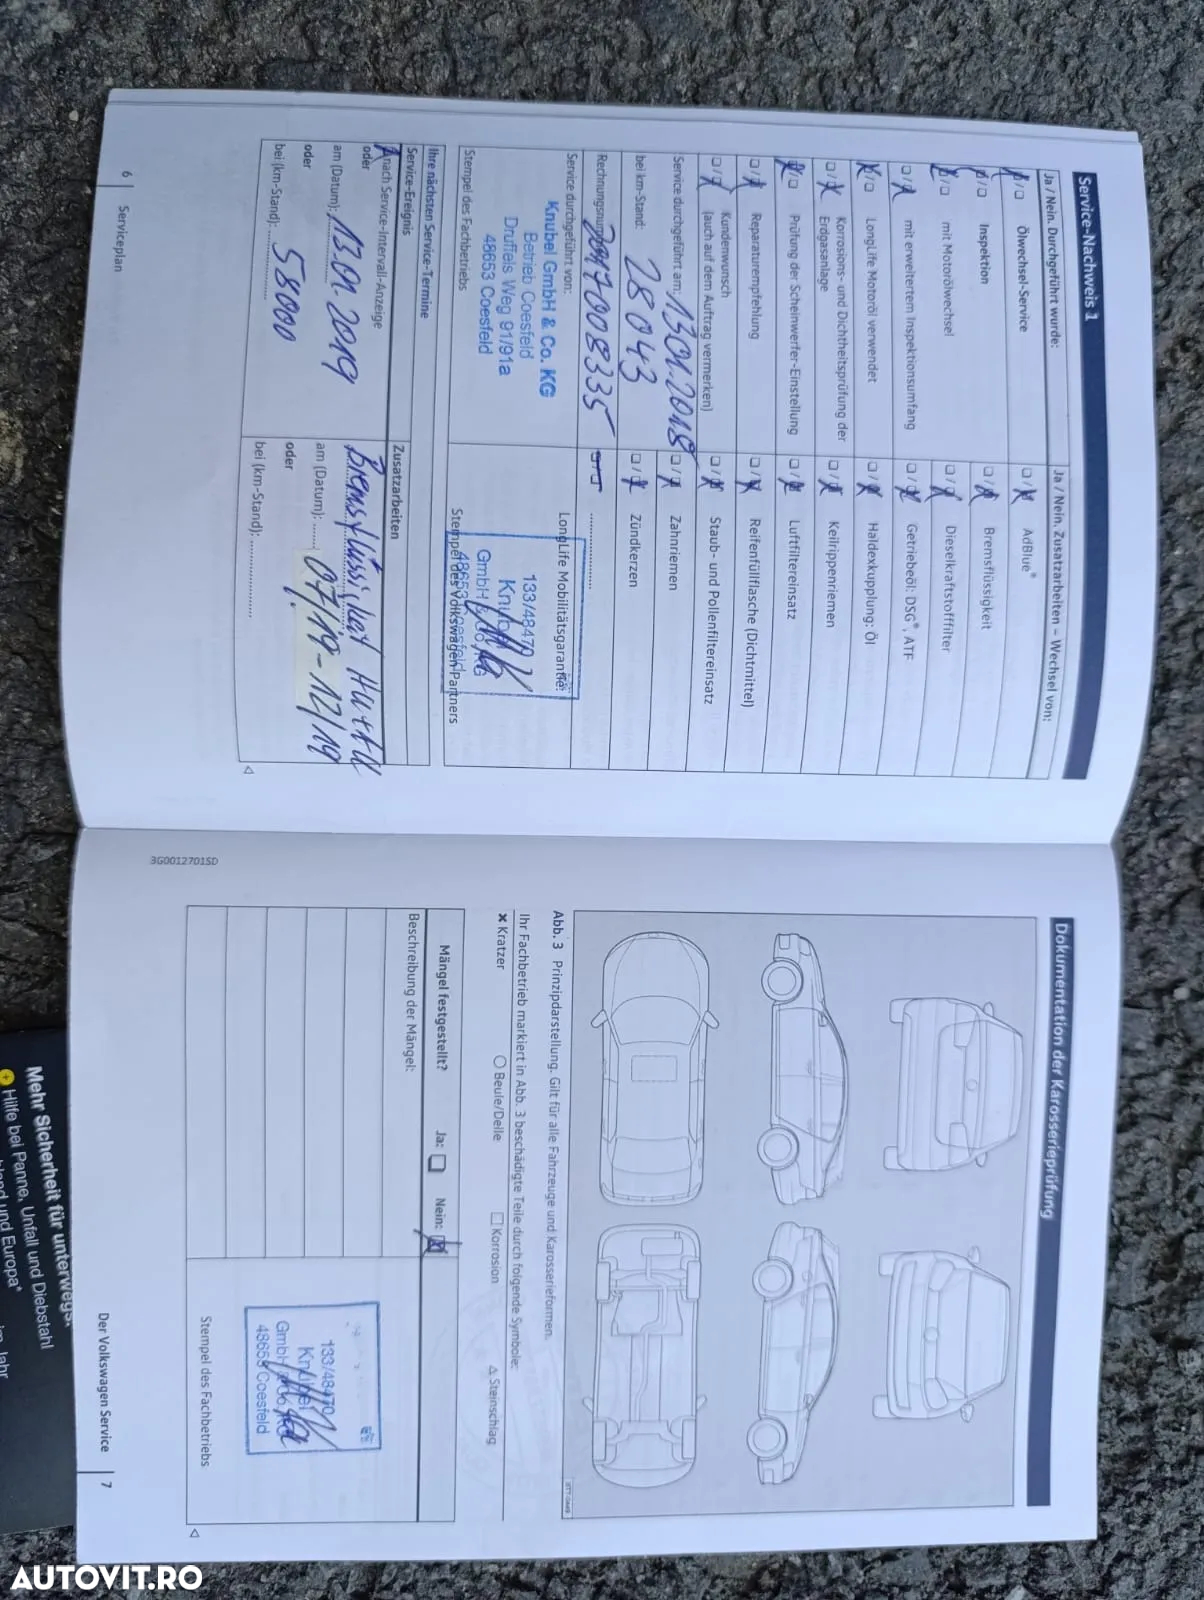 Service-Nachweis 1
Ja / Nein. Durchgeführt wurde:
Ölwechsel-Service
Inspektion
mit Motorölwechsel
mit erweitertem Inspektionsumfang
LongLife Motoröl verwendet
Korrosions- und Dichtheitsprüfung der
Erdgasanlage
Prüfung der Scheinwerfer-Einstellung
Reparaturempfehlung
Kundenwunsch
(auch auf dem Auftrag vermerken)
Ja / Nein. Zusatzarbeiten – Wechsel von:
AdBlue®
Bremsflüssigkeit
Dieselkraftstofffilter
Getriebeöl: DSG®, ATF
Haldexkupplung: Öl
Keilrippenriemen
Luftfiltereinsatz
Reifenfüllflasche (Dichtmittel)
Staub- und Pollenfiltereinsatz
Zahnriemen
Zündkerzen
Service durchgeführt am: 13.01.2018
bei km-Stand: 28043
Service durchgeführt von:
Knubel GmbH & Co. KG
Betrieb Coesfeld
Druffels Weg 91/91a
48653 Coesfeld
Stempel des Fachbetriebs
LongLife Mobilitätsgarantie:
133/48470
Knubel
GmbH & Co KG
48653 Coesfeld
Stempel des Volkswagen Partners
Ihre nächsten Service-Termine
Service-Ereignis
nach Service-Intervall-Anzeige
oder
am (Datum): 13.01.2019
oder
bei (km-Stand): 58000
Zusatzarbeiten
am (Datum): 07/19-12/19
oder
bei (km-Stand):
6 Serviceplan
Dokumentation der Karosserieprüfung
Abb. 3 Prinzipdarstellung. Gilt für alle Fahrzeuge und Karosserieformen.
Ihr Fachbetrieb markiert in Abb. 3 beschädigte Teile durch folgende Symbole:
✘ Kratzer ○ Beule/Delle □ Korrosion △ Steinschlag
Mängel festgestellt? Ja: Nein:
Beschreibung der Mängel:
133/48470
Knubel
GmbH & Co KG
48653 Coesfeld
Stempel des Fachbetriebs
3G0012701SD
Der Volkswagen Service 7
Mehr Sicherheit für unterwegs.
Hilfe bei Panne, Unfall und Diebstahl
und Europa*
AUTOVIT.RO